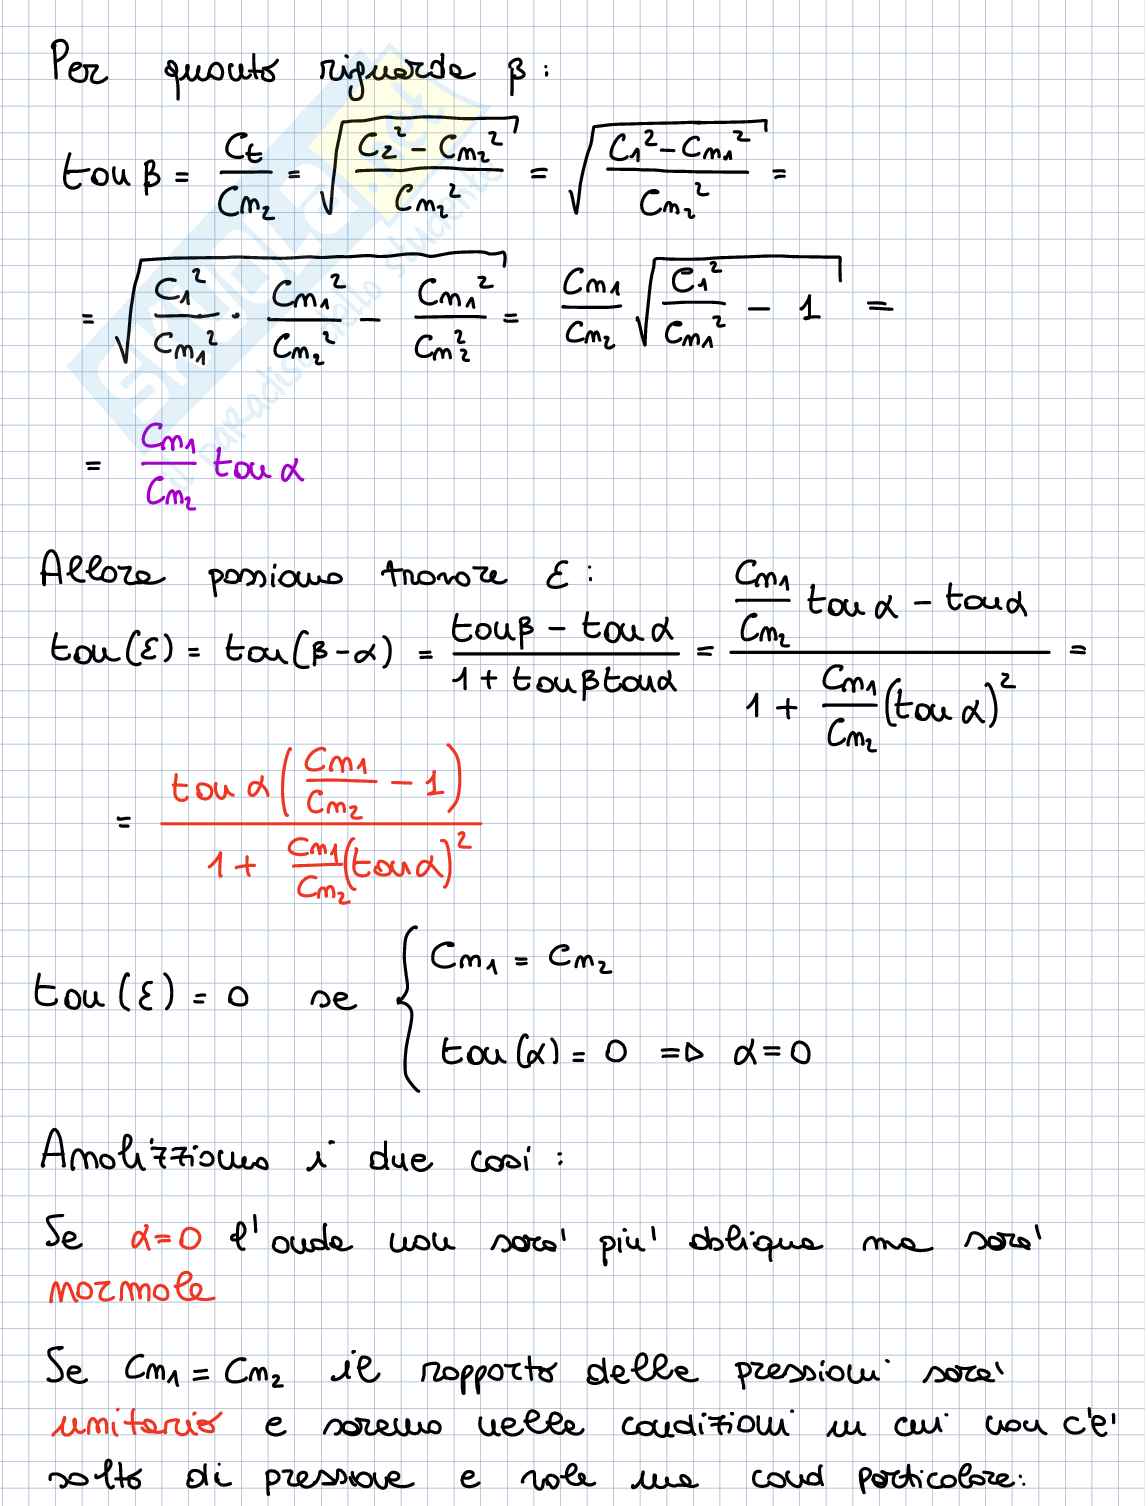 Per quanto riguarda β:
tan β = Ct/Cn₂ = √((C₂² - Cn₂²)/Cn₂²) = √((C₁² - Cn₁²)/Cn₂²) =
= √(C₁²/Cn₁² · Cn₁²/Cn₂² - Cn₁²/Cn₂²) = Cn₁/Cn₂ √(C₁²/Cn₁² - 1) =
= Cn₁/Cn₂ tan α
Allora possiamo trovare ε:
tan(ε) = tan(β-α) = (tanβ - tanα)/(1 + tanβ tanα) = (Cn₁/Cn₂ tanα - tanα)/(1 + Cn₁/Cn₂ (tan α)²) =
= tan α (Cn₁/Cn₂ - 1)/(1 + Cn₁/Cn₂ (tan α)²)
tan(ε) = 0 se { Cn₁ = Cn₂
tan(α) = 0 => α = 0
Analizziamo i due casi:
Se α=0 l'onda non sara' piu' obliqua ma sara'
normale
Se Cn₁ = Cn₂ il rapporto delle pressioni sara'
unitario e saremo nelle condizioni in cui non c'e'
salto di pressione e vale una cond particolare: